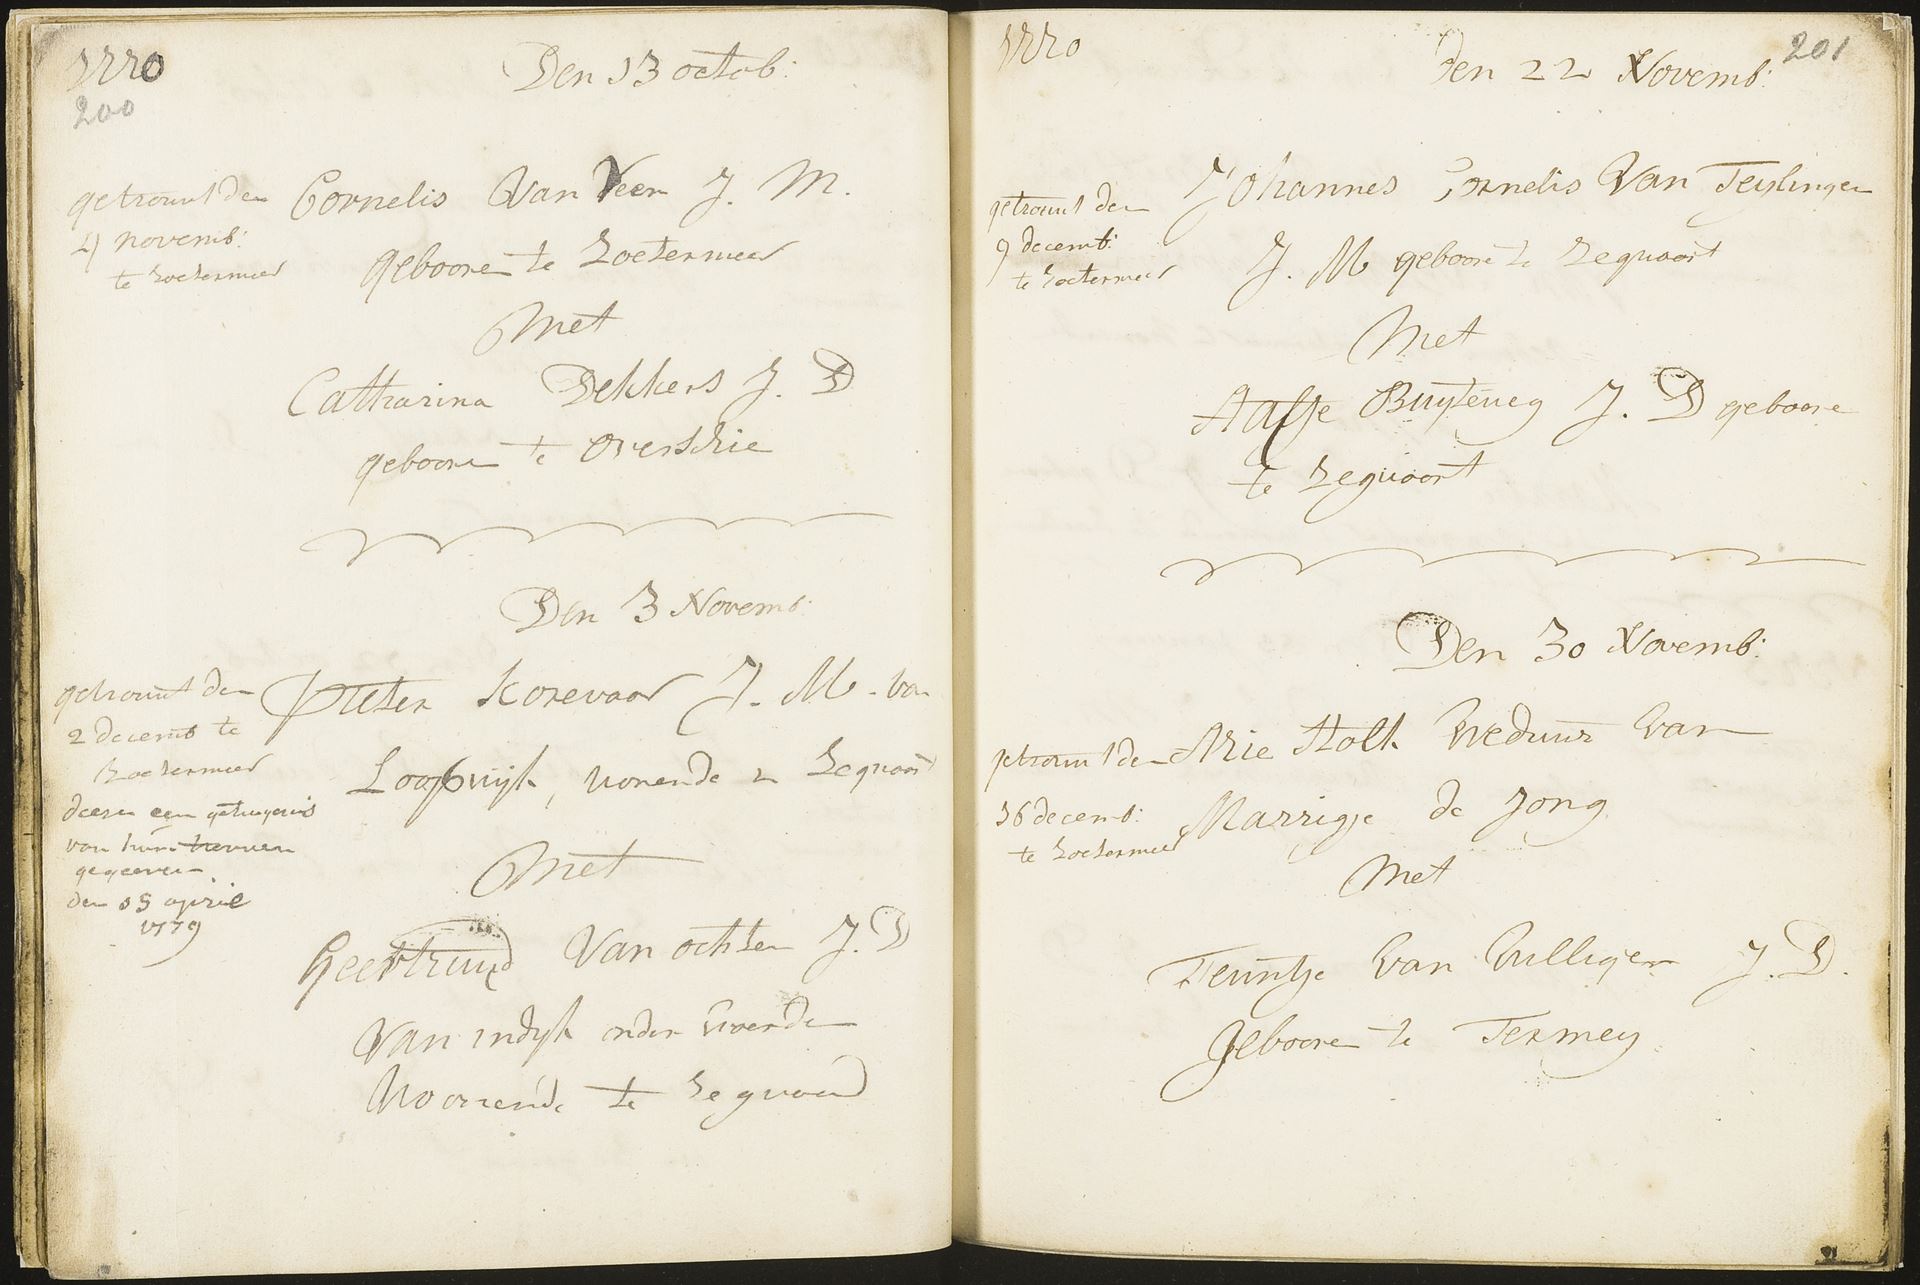 1770
200
Den 13 octob:
getrouwt den
4 novemb:
te Soetermeer
Cornelis Van Veen J. M.
geboren te Soetermeer
Met
Catharina Dekkers J. D
geboren te Overschie
Den 3 Novemb:
getrouwt den
2 decemb te
Soetermeer
deesen een getuygenis
van hun trouwen
gegeeven
den 15 april
1779
Pieter Korevaar J. M. van
woonende in Segwaart
Met
Geertruud Van ochten J. D
Van indyk onder Woerden
Woonende te Segwaard
1770
201
Den 22 Novemb:
getrouwt den
9 decemb:
te Soetermeer
Johannes Cornelis Van Teylingen
J. M geboore te Segwaart
Met
Buyteweg J. D geboore
te Segwaart
Den 30 Novemb:
getrouwt den
16 decemb:
te Soetermeer
Arie Holk Weduwr Van
Marrigje de Jong
Met
Teuntje Van Vulligen J. D.
Geboren te Termey